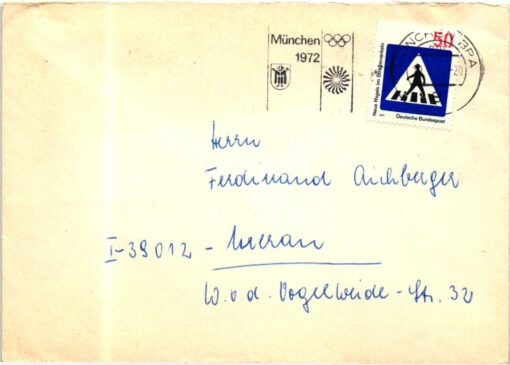 München
1972
50
Neue Regeln im Straßenverkehr
Deutsche Bundespost
Herrn
Ferdinand Aichberger
I-39012 - Meran
W. v. d. Vogelweide-Str. 32